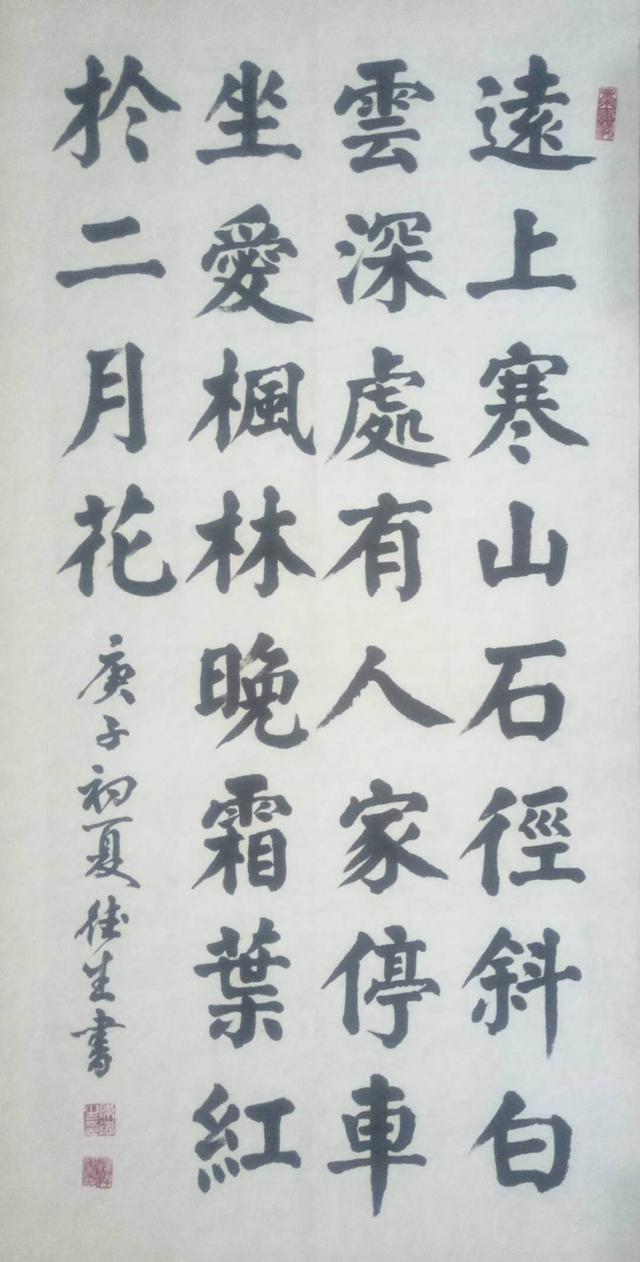 遠上寒山石徑斜白
雲深處有人家停車
坐愛楓林晚霜葉紅
於二月花
庚子初夏佳生書